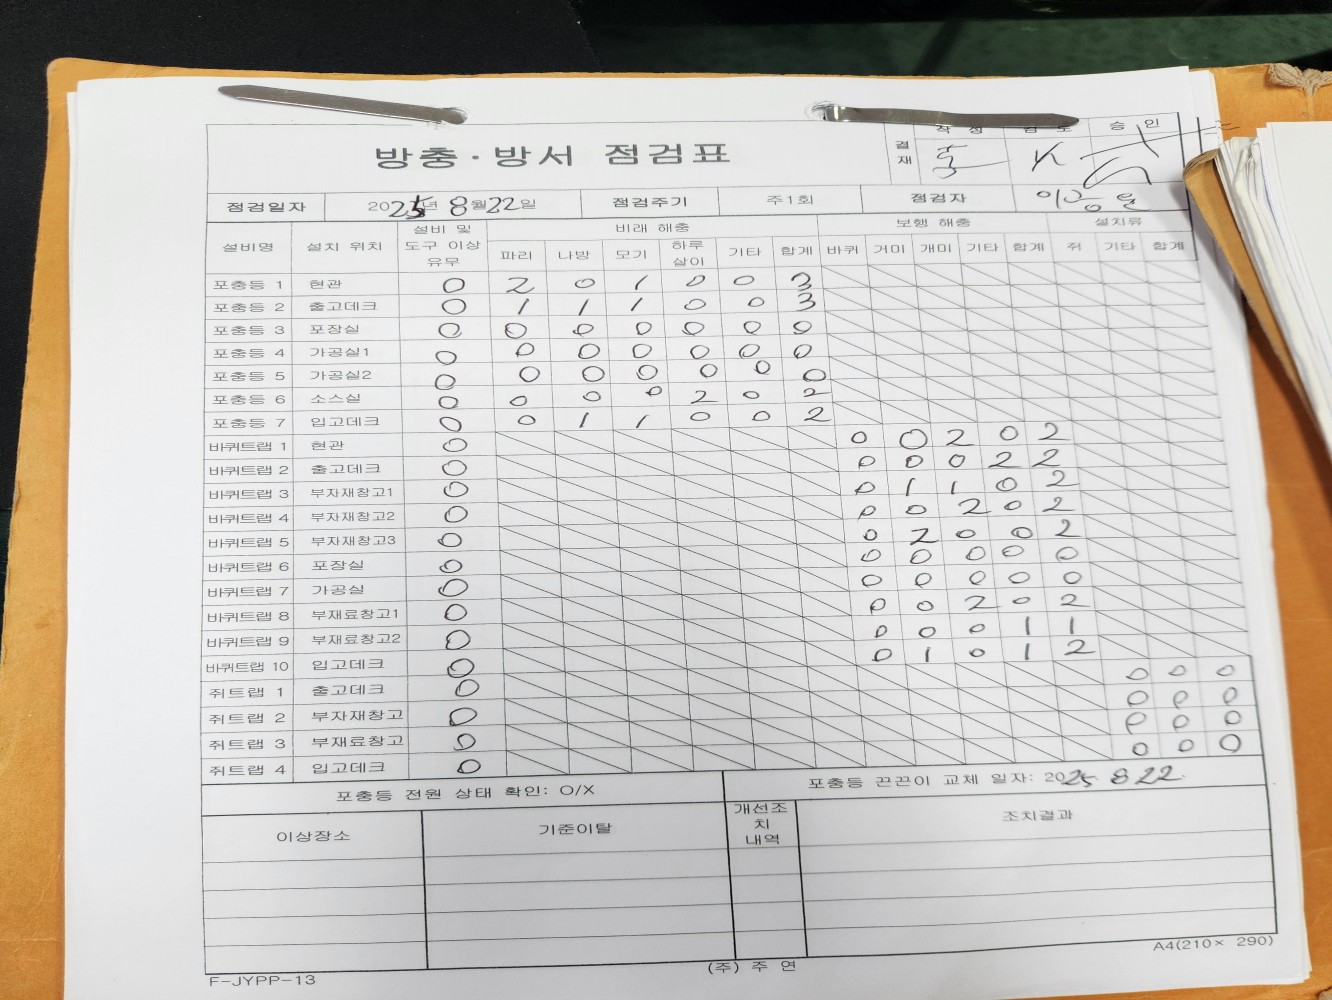 방충·방서 점검표
결재 작성 검토 승인
점검일자 2025년 8월 22일 점검주기 주1회 점검자
설비명 설치 위치 설비 및 도구 이상 유무 비래 해충 보행 해충 설치류
파리 나방 모기 하루살이 기타 합계 바퀴 거미 개미 기타 합계 쥐 기타 합계
포충등 1 현관 0 2 0 1 0 0 3
포충등 2 출고데크 0 1 1 1 0 0 3
포충등 3 포장실 0 0 0 0 0 0 0
포충등 4 가공실1 0 0 0 0 0 0 0
포충등 5 가공실2 0 0 0 0 0 0 0
포충등 6 소스실 0 0 0 0 2 0 2
포충등 7 입고데크 0 0 1 1 0 0 2
바퀴트랩 1 현관 0 0 0 2 0 2
바퀴트랩 2 출고데크 0 0 0 0 2 2
바퀴트랩 3 부자재창고1 0 0 1 1 0 2
바퀴트랩 4 부자재창고2 0 0 0 2 0 2
바퀴트랩 5 부자재창고3 0 0 2 0 0 2
바퀴트랩 6 포장실 0 0 0 0 0 0
바퀴트랩 7 가공실 0 0 0 0 0 0
바퀴트랩 8 부재료창고1 0 0 0 2 0 2
바퀴트랩 9 부재료창고2 0 0 0 0 1 1
바퀴트랩 10 입고데크 0 0 1 0 1 2
쥐트랩 1 출고데크 0 0 0 0
쥐트랩 2 부자재창고 0 0 0 0
쥐트랩 3 부재료창고 0 0 0 0
쥐트랩 4 입고데크 0 0 0 0
포충등 전원 상태 확인: O/X 포충등 끈끈이 교체 일자: 2025 8 22
이상장소 기준이탈 개선조치 내역 조치결과
F-JYPP-13 (주) 주 연 A4(210× 290)